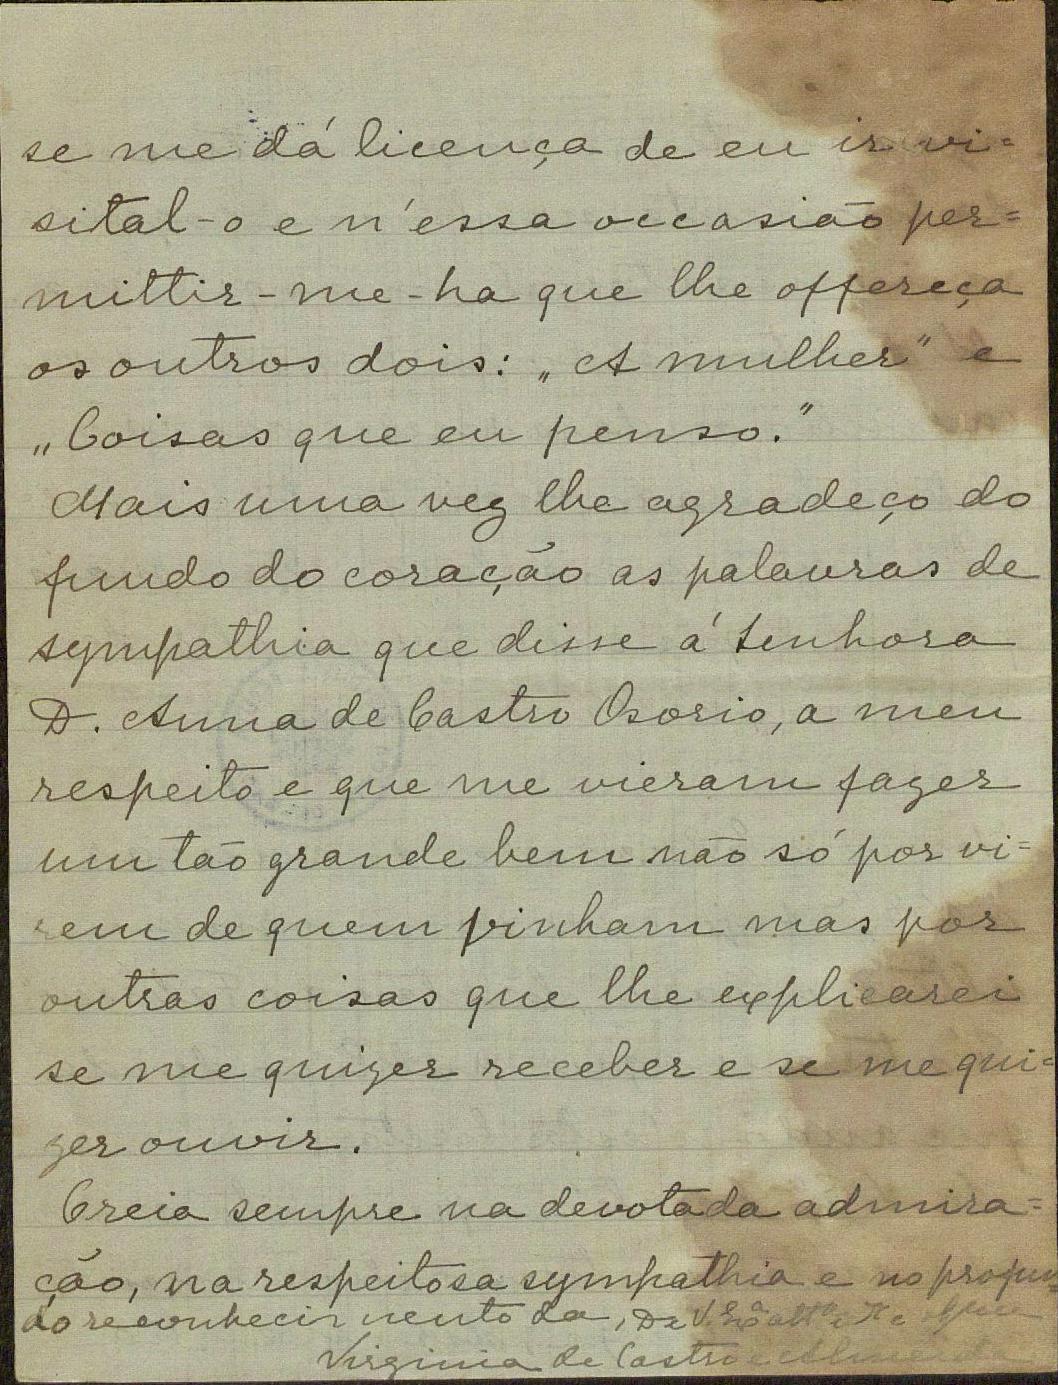 se me dá licença de eu ir vi=
sital-o e n'essa occasião per=
mittir-me-ha que lhe offereça
os outros dois: „A mulher" e
„Coisas que eu penso."
Mais uma vez lhe agradeço do
fundo do coração as palavras de
sympathia que disse á Senhora
D. Anna de Castro Osorio, a meu
respeito e que me vieram fazer
um tão grande bem não só por vi=
rem de quem vinham mas por
outras coisas que lhe explicarei
se me quizer receber e se me qui=
zer ouvir.
Creia sempre na devotada admira=
ção, na respeitosa sympathia e no profun
do reconhecimento da, De V. Exª
Virginia de Castro e Almeida